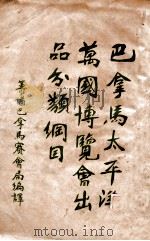 巴拿馬太平洋
萬國博覽會出
品分類綱目
美國巴拿馬賽會局編譯